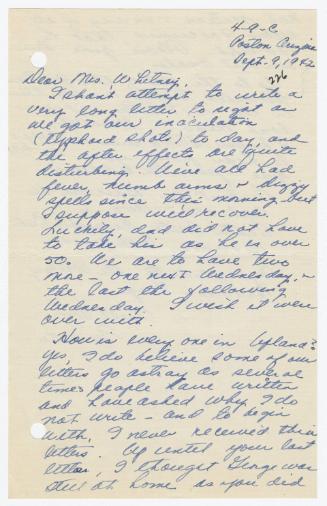 4-9-C
Poston Arizona
Sept. 9, 1942
226
Dear Mrs. Whitney,
I shan't attempt to write a
very long letter to night as
we got our inoculation
(typhoid shots) to day, and
the after effects are quite
disturbing. We've all had
fever, numb arms + dizzy
spells since this morning but
I suppose we'll recover.
Luckily, dad did not have
to take his as he is over
50. We are to have two
more - one next Wednesday, +
the last the following
Wednesday. I wish it were
over with.
How is every one in Upland?
Yes, I do believe some of our
letters go astray as several
times people have written
and have asked why I do
not write - and to begin
with, I never received their
letters. Up until your last
letter, I thought George was
still at home as you did